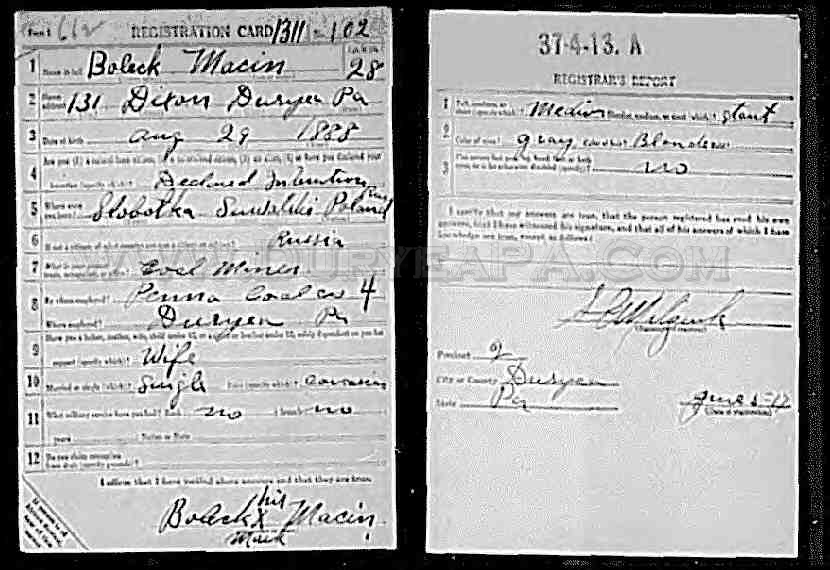 Form 1 REGISTRATION CARD 1311 No. 102
1 Name in full Boleck Macin Age, in yrs. 28
2 Home address 131 Dixon Duryea Pa
3 Date of birth Aug 29 1888
4 Are you (1) a natural-born citizen, (2) a naturalized citizen, (3) an alien, (4) or have you declared your
intention (specify which)? Declared Intention
5 Where were you born? Slobotka Suwalski Poland Rus
6 If not a citizen, of what country are you a citizen or subject? Russia
7 What is your present trade, occupation, or office? Coal Miner
8 By whom employed? Penna Coal Co 4
Where employed? Duryea Pa
9 Have you a father, mother, wife, child under 12, or a sister or brother under 12, solely dependent on you for
support (specify which)? Wife
10 Married or single (which)? Single Race (specify which)? Caucasian
11 What military service have you had? Rank no branch no
years Nation or State
12 Do you claim exemption from draft (specify grounds)?
I affirm that I have verified above answers and that they are true.
his
Boleck X Macin
Mark
37-4-13. A
REGISTRAR'S REPORT
1 Tall, medium, or short (specify which)? Medium Slender, medium, or stout (which)? Stout
2 Color of eyes? gray Color of hair? Blonde
3 no
I certify that my answers are true, that the person registered has read his own
answers, that I have witnessed his signature, and that all of his answers of which I have
knowledge are true, except as follows:
Precinct 2
City or County Duryea
State Pa June 5-17
(Date of registration)
WWW.DURYEAPA.COM